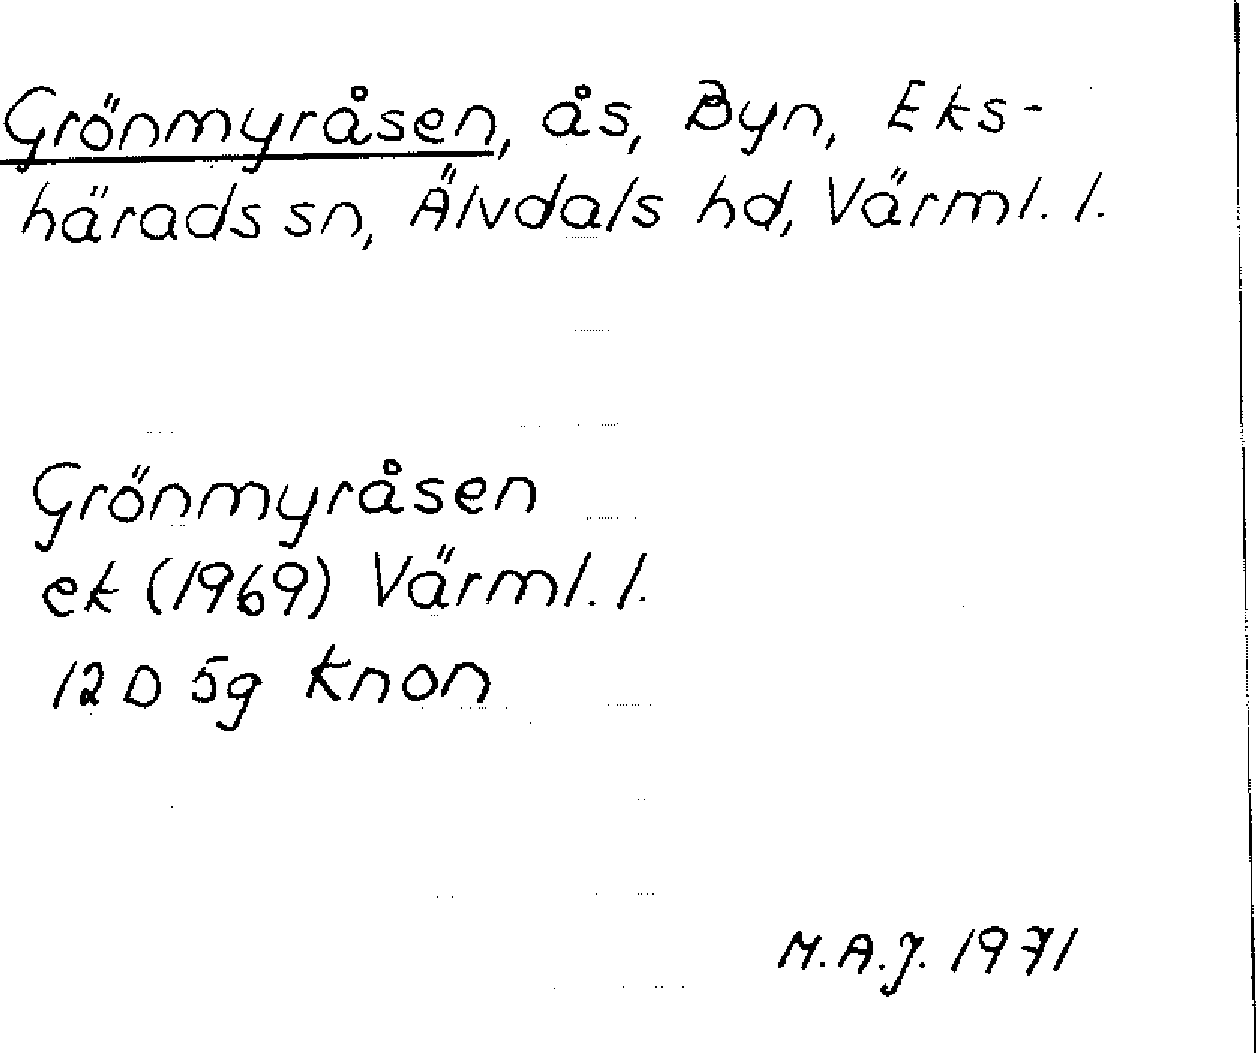 Grönmyråsen, ås, Byn, Eks-
härads sn, Älvdals hd, Värml. l.
Grönmyråsen
ek (1969) Värml. l.
12 D 5g Knon
M.A.J. 1971